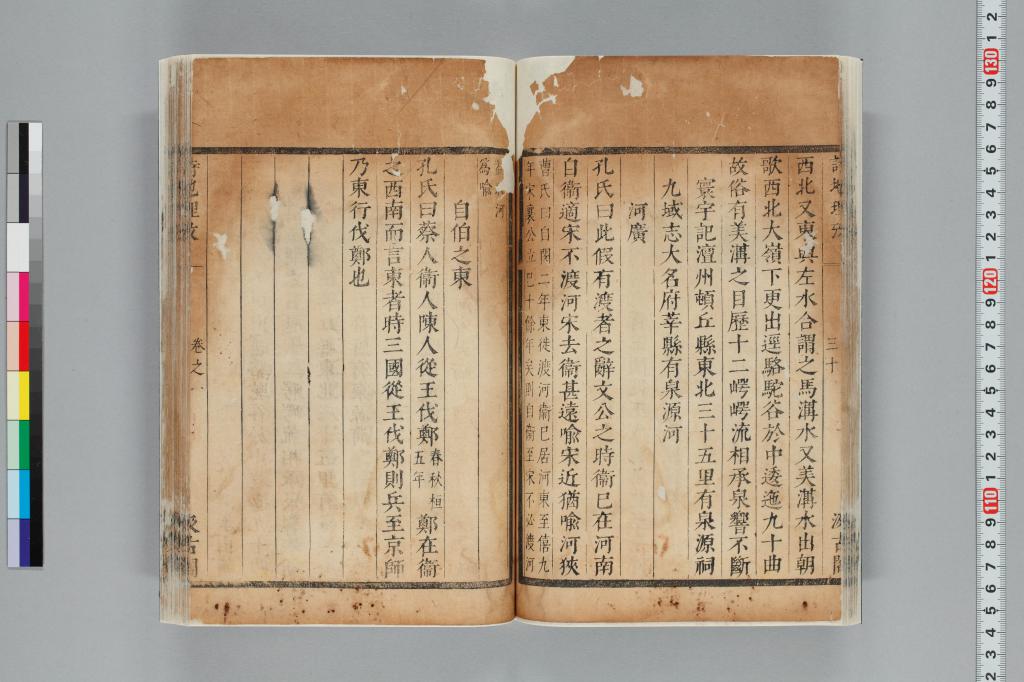 西北又東與左水合謂之馬溝水又美溝水出朝
歌西北大嶺下更出逕駱駝谷於中逶迤九十曲
故俗有美溝之目歷十二崿崿流相承泉響不斷
寰宇記澶州頓丘縣東北三十五里有泉源祠
九域志大名府莘縣有泉源河
河廣
孔氏曰此假有渡者之辭文公之時衞已在河南
自衞適宋不渡河宋去衞甚遠喻宋近猶喻河狹
曹氏曰自閔二年東徙渡河衞已居河東至僖九
年宋襄公立已十餘年矣則自衞至宋不必渡河
河
爲喻
自伯之東
孔氏曰蔡人衞人陳人從王伐鄭春秋桓五年鄭在衞
之西南而言東者時三國從王伐鄭則兵至京師
乃東行伐鄭也
卷之一
三十